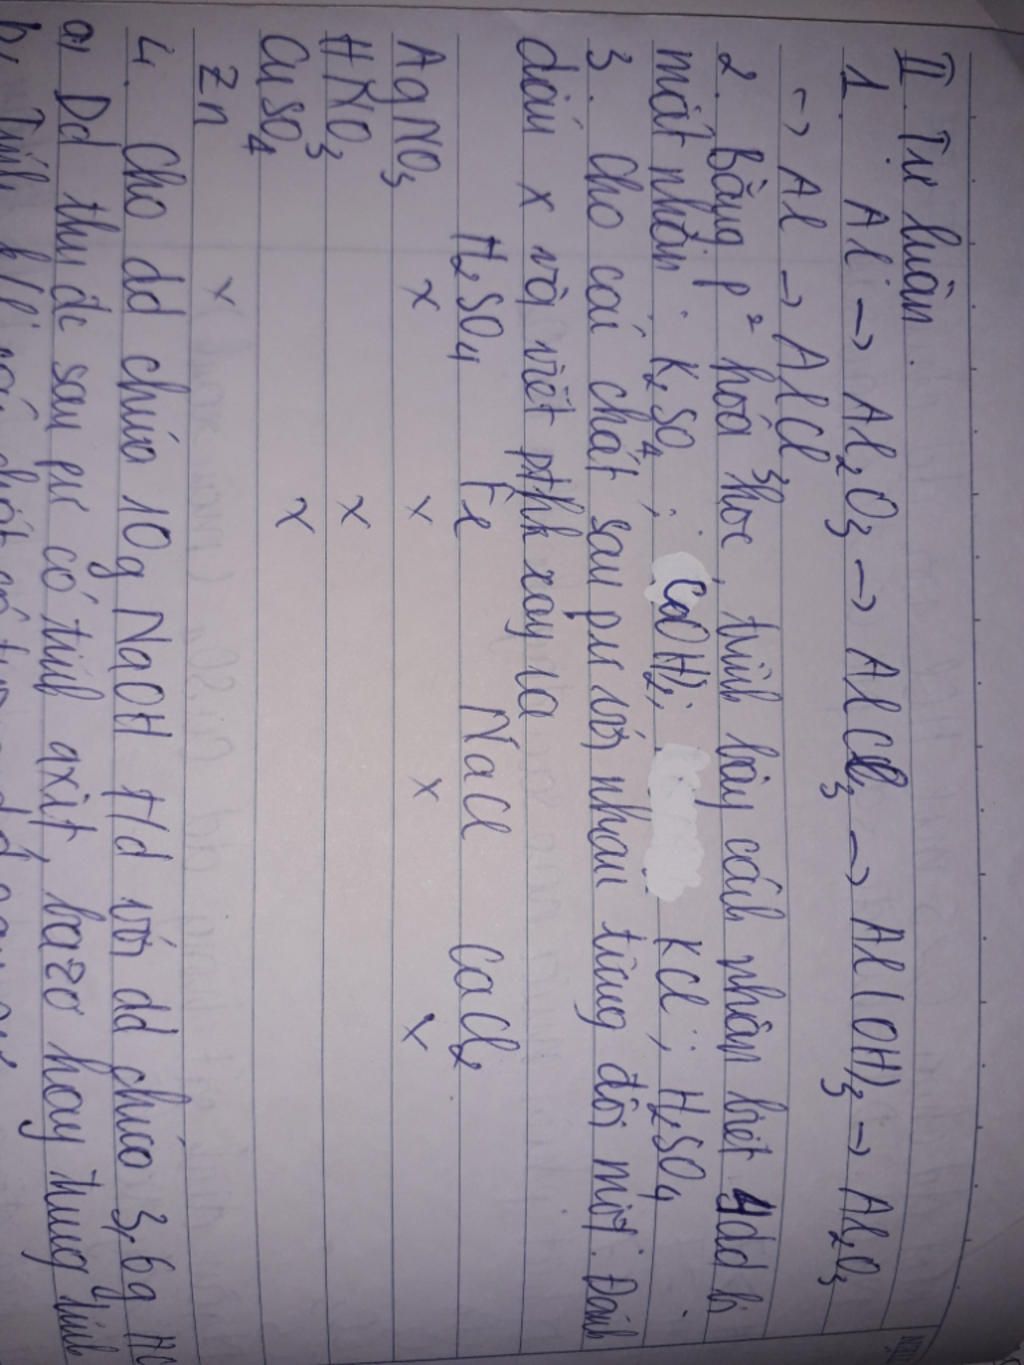 II. Tự luận.
1. Al → Al₂O₃ → AlCl₃ → Al(OH)₃ → Al₂O₃
→ Al → AlCl₃
2. Bằng p² hoá học, trình bày cách nhận biết 4dd bị
mất nhãn: K₂SO₄; Ca(OH)₂; KCl; H₂SO₄
3. Cho các chất sau pư với nhau từng đôi một. Đánh
dấu x và viết pthh xảy ra
H₂SO₄ Fe NaCl CaCl₂
AgNO₃ x x x x
HNO₃ x
CuSO₄ x
Zn x
4. Cho dd chứa 10g NaOH t/d với dd chứa 3,6g
a) Dd thu đc sau pư có tính axit, bazơ hay trung tính
b) Tính